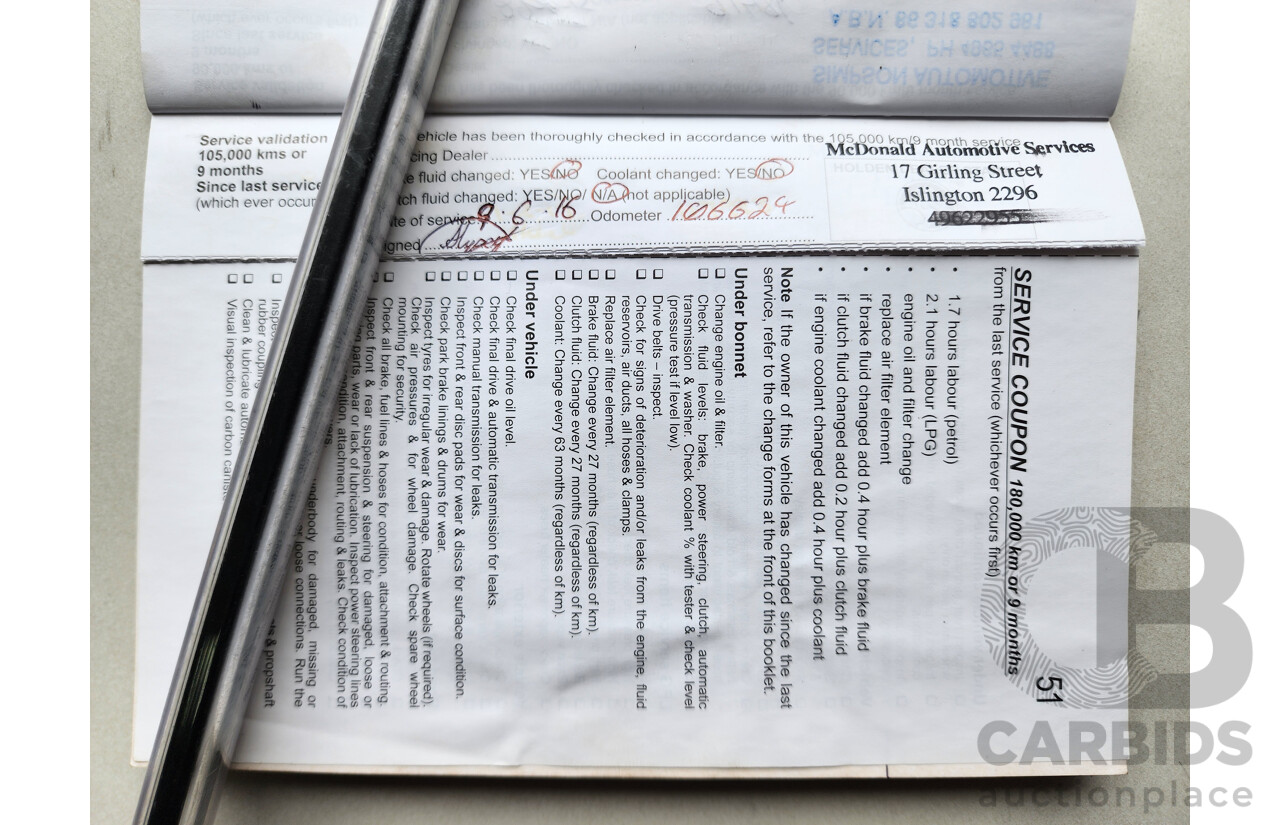 SIMPSON AUTOMOTIVE
SERVICES, PH 4965 4488
A.B.N. 66 318 802 981
Service validation
105,000 kms or
9 months
Since last service
(which ever occur
ehicle has been thoroughly checked in accordance with the 105,000 km/9 month service
cing Dealer
e fluid changed: YES/NO Coolant changed: YES/NO
tch fluid changed: YES/NO/ N/A (not applicable)
te of service 9.6.16 Odometer 106624
igned
McDonald Automotive Services
17 Girling Street
Islington 2296
49622955
51
SERVICE COUPON 180,000 km or 9 months
from the last service (whichever occurs first)
• 1.7 hours labour (petrol)
• 2.1 hours labour (LPG)
• engine oil and filter change
• replace air filter element
• if brake fluid changed add 0.4 hour plus brake fluid
• if clutch fluid changed add 0.2 hour plus clutch fluid
• if engine coolant changed add 0.4 hour plus coolant
Note If the owner of this vehicle has changed since the last
service, refer to the change forms at the front of this booklet.
Under bonnet
Change engine oil & filter.
Check fluid levels: brake, power steering, clutch, automatic
transmission & washer. Check coolant % with tester & check level
(pressure test if level low).
Drive belts – inspect.
Check for signs of deterioration and/or leaks from the engine, fluid
reservoirs, air ducts, all hoses & clamps.
Replace air filter element.
Brake fluid: Change every 27 months (regardless of km).
Clutch fluid: Change every 27 months (regardless of km).
Coolant: Change every 63 months (regardless of km).
Under vehicle
Check final drive oil level.
Check final drive & automatic transmission for leaks.
Check manual transmission for leaks.
Inspect front & rear disc pads for wear & discs for surface condition.
Check park brake linings & drums for wear.
Inspect tyres for irregular wear & damage. Rotate wheels (if required).
Check air pressures & for wheel damage. Check spare wheel
mounting for security.
Check all brake, fuel lines & hoses for condition, attachment & routing.
Inspect front & rear suspension & steering for damaged, loose or
parts, wear or lack of lubrication. Inspect power steering lines
ndition, attachment, routing & leaks. Check condition of
ers.
nderbody for damaged, missing or
loose connections. Run the
& propshaft
Inspec
rubber coupling
Clean & lubricate autom
Visual inspection of carbon canist
CARBIDS
auctionplace